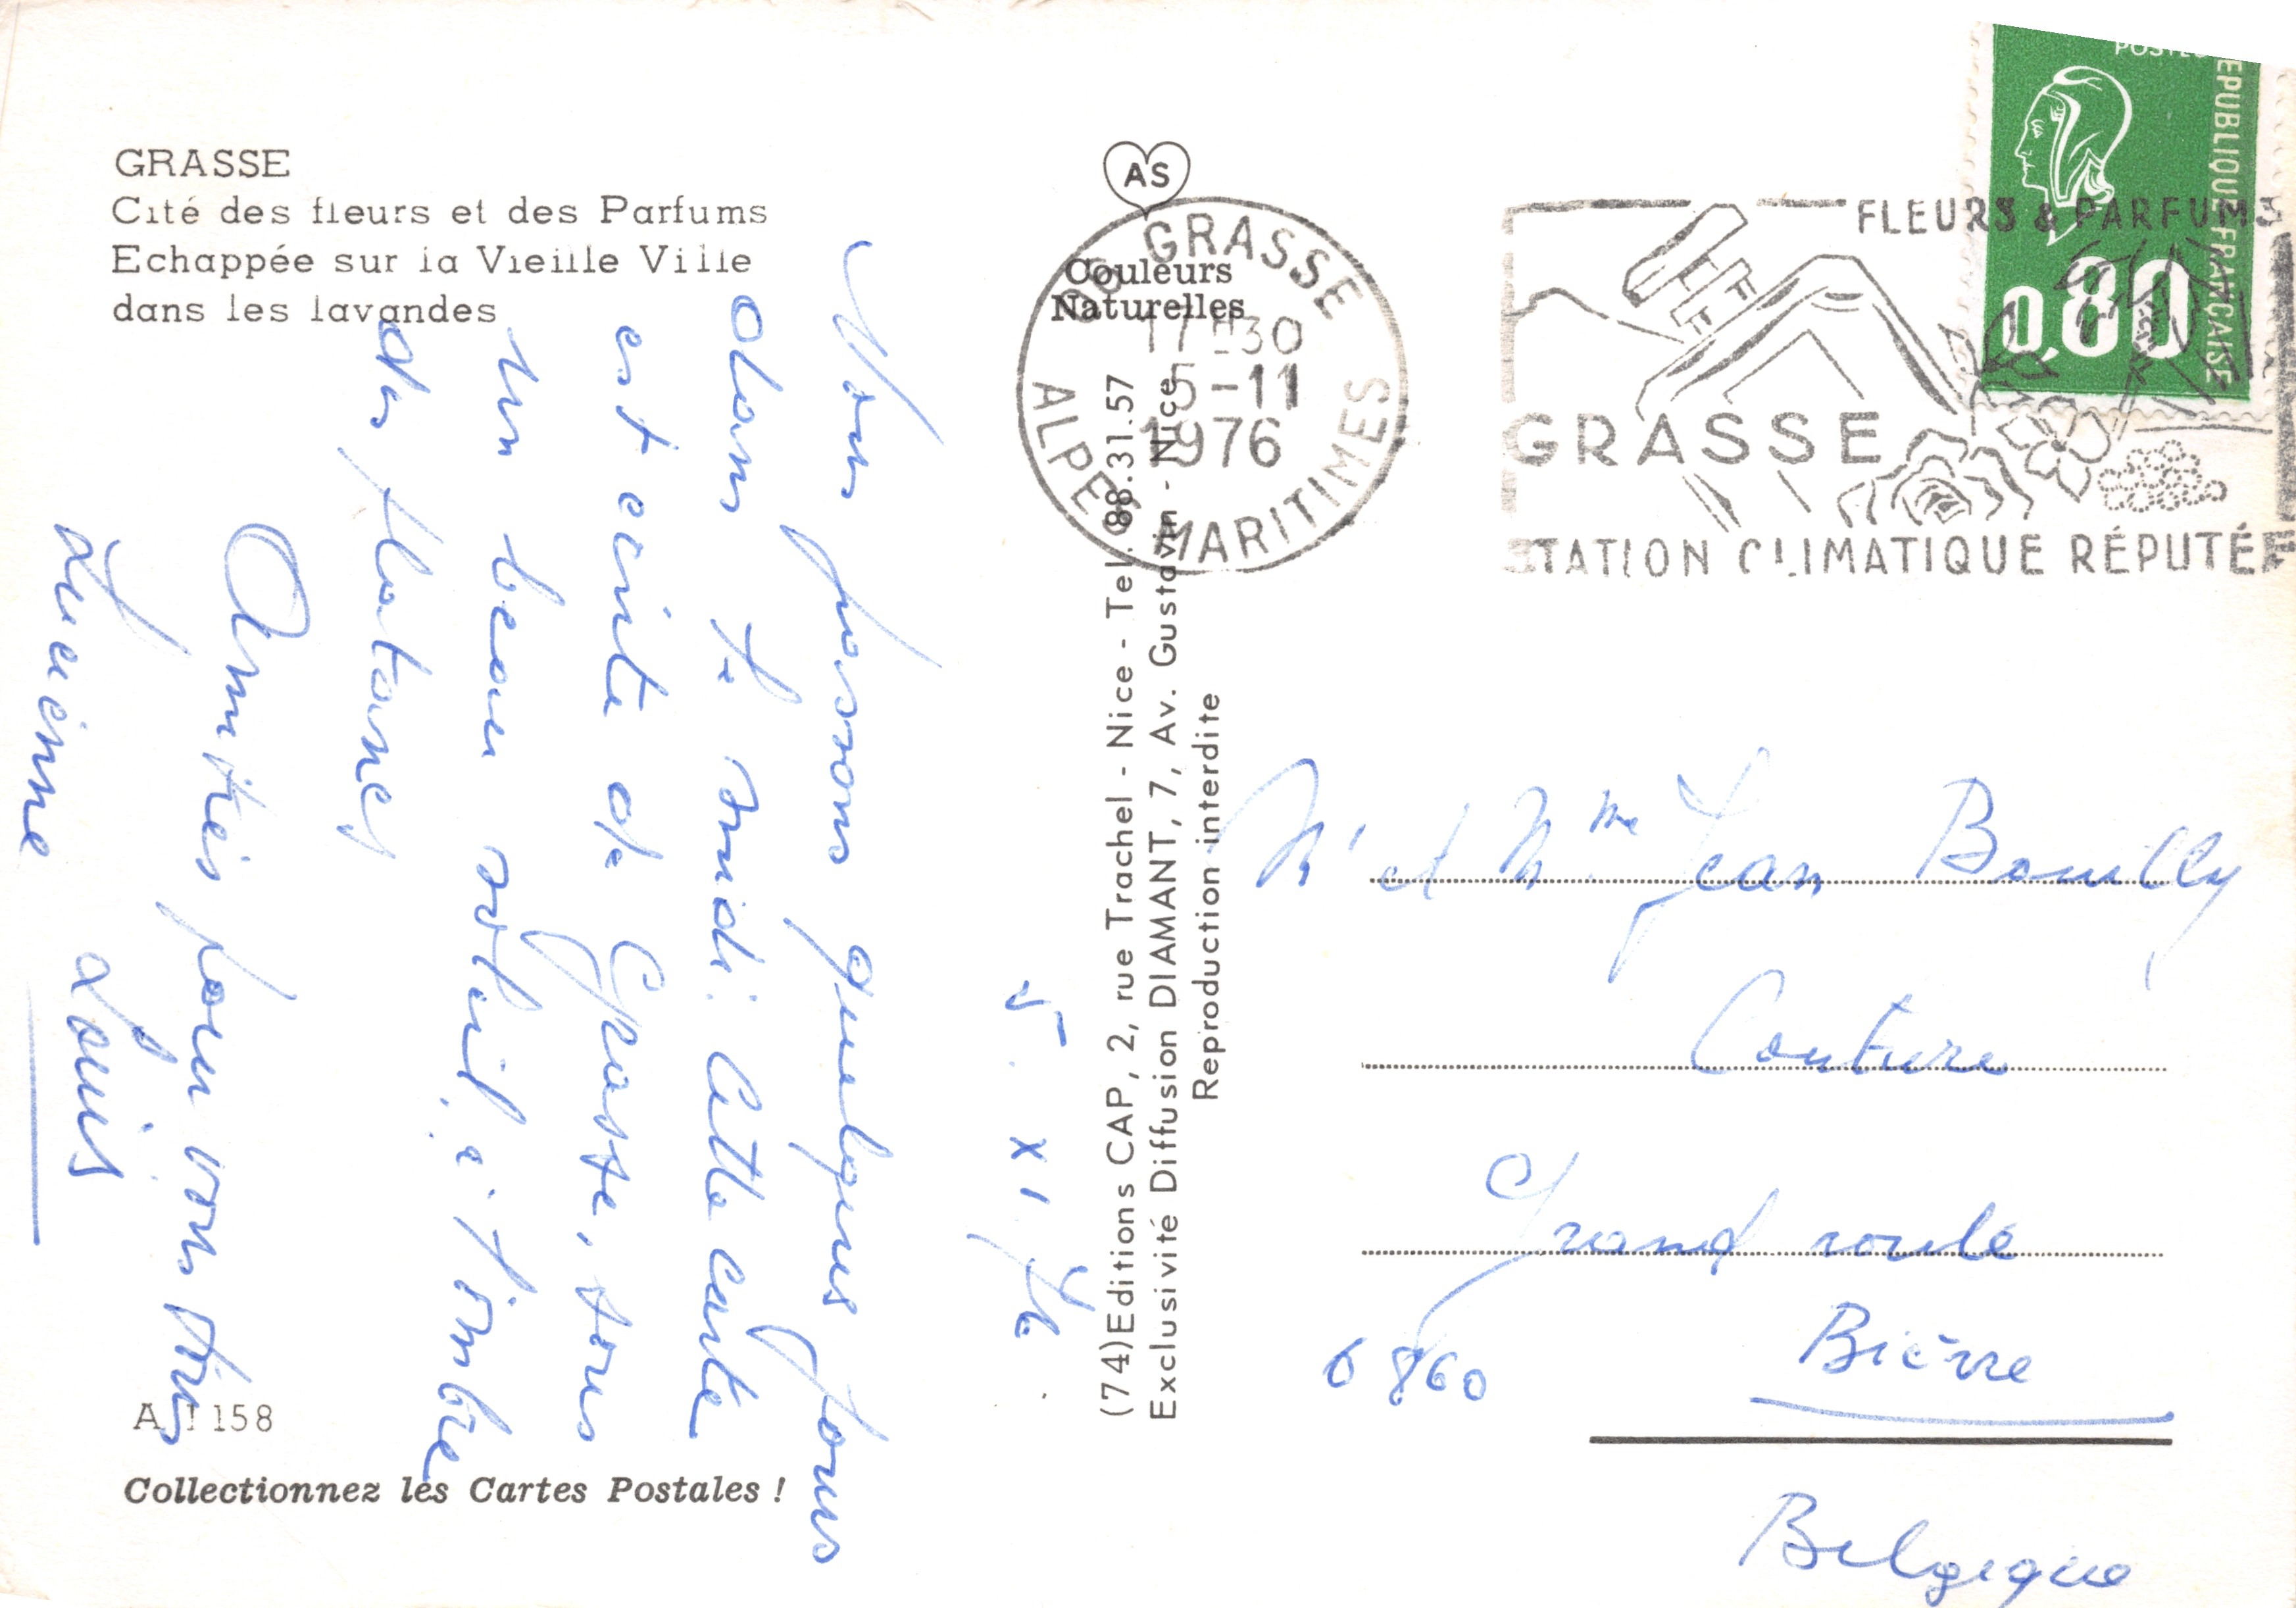 GRASSE
Cité des fleurs et des Parfums
Echappée sur la Vieille Ville
dans les lavandes
5. XI. 76
Nous passons quelques jours
dans le midi. Cette carte
est écrite de Grasse, sous
un beau soleil, à l'ombre
des platanes
Amitiés pour vous tous
Lucienne Louis
A 158
Collectionnez les Cartes Postales !
AS
Couleurs
Naturelles
(74) Editions CAP, 2, rue Trachel - Nice - Tel. 88.31.57
Exclusivité Diffusion DIAMANT, 7, Av. Gustavin - Nice
Reproduction interdite
06 GRASSE
17H30
5-11
1976
ALPES MARITIMES
FLEURS & PARFUMS
GRASSE
STATION CLIMATIQUE RÉPUTÉE
POSTES
REPUBLIQUE FRANCAISE
0,80
Mr et Mme Jean Bouilly
Couture
Grand route
6860 Bièrre
Belgique